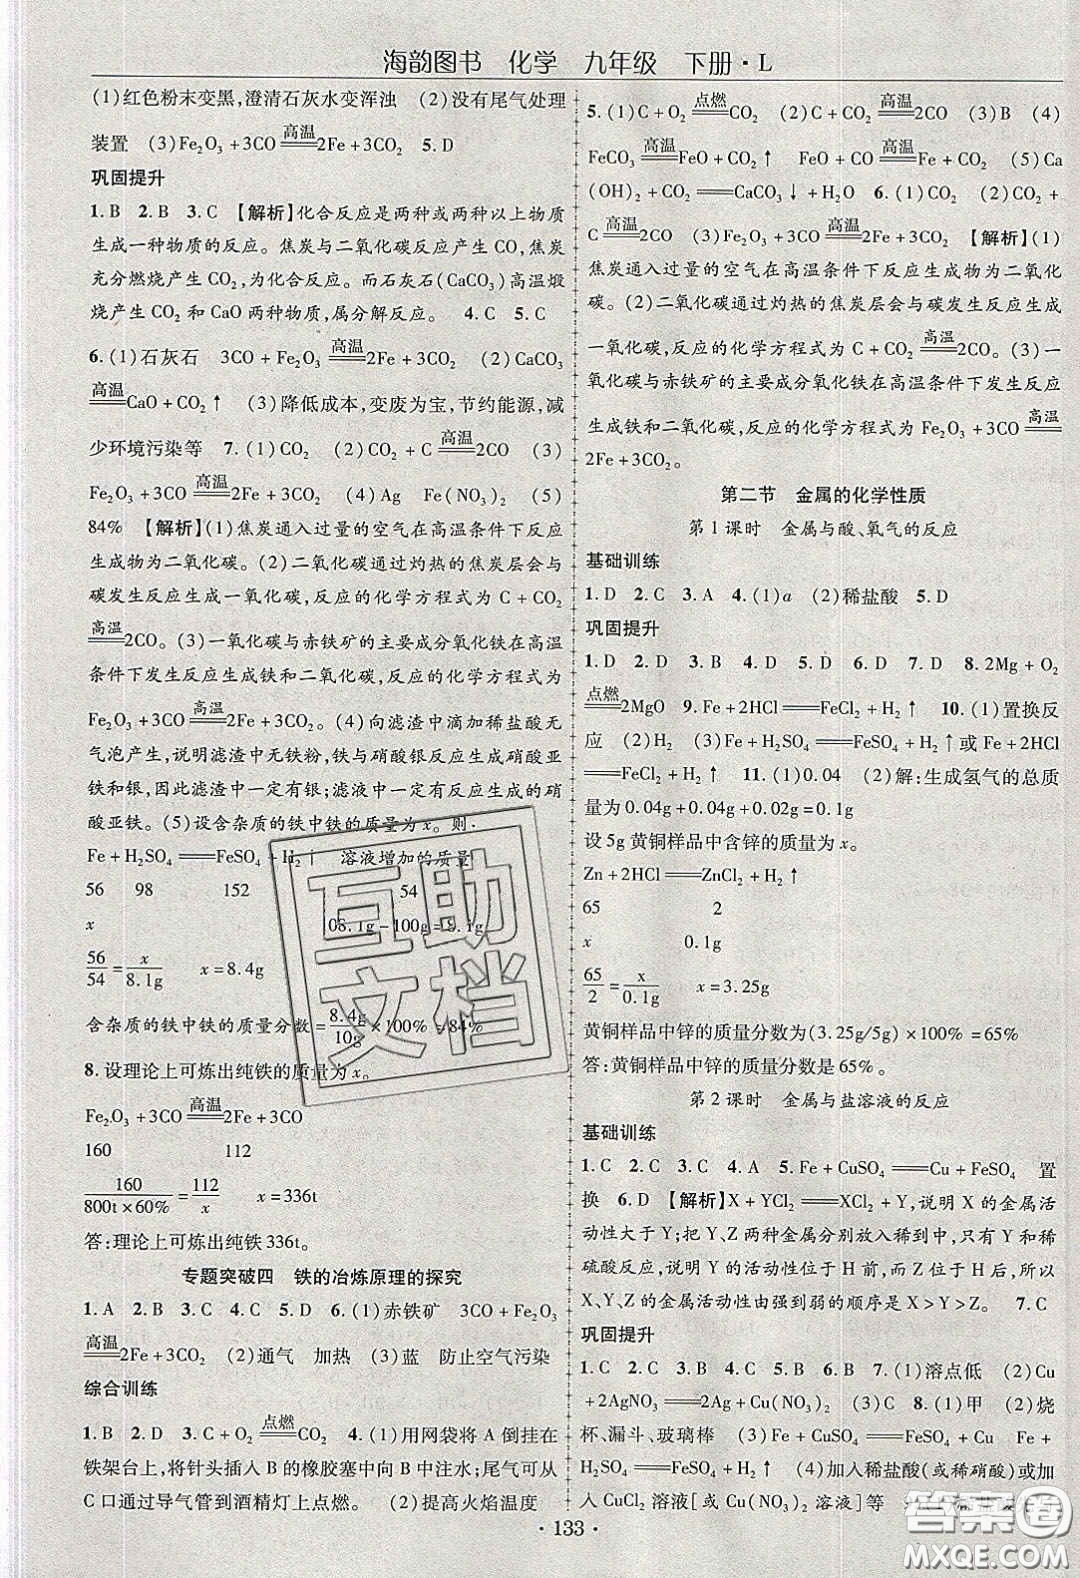 海韵图书 化学 九年级 下册·L
(1)红色粉末变黑,澄清石灰水变浑浊 (2)没有尾气处理
装置 (3)Fe₂O₃+3CO══高温══2Fe+3CO₂ 5.D
巩固提升
1.B 2.B 3.C 【解析】化合反应是两种或两种以上物质
生成一种物质的反应。焦炭与二氧化碳反应产生CO,焦炭
充分燃烧产生CO₂,为化合反应。而石灰石(CaCO₃)高温煅
烧产生CO₂和CaO两种物质,属分解反应。 4.C 5.C
6.(1)石灰石 3CO+Fe₂O₃══高温══2Fe+3CO₂ (2)CaCO₃
══高温══CaO+CO₂↑ (3)降低成本,变废为宝,节约能源,减
少环境污染等 7.(1)CO₂ (2)CO₂+C══高温══2CO (3)
Fe₂O₃+3CO══高温══2Fe+3CO₂ (4)Ag Fe(NO₃)₂ (5)
84% 【解析】(1)焦炭通入过量的空气在高温条件下反应
生成物为二氧化碳。(2)二氧化碳通过灼热的焦炭层会与
碳发生反应生成一氧化碳,反应的化学方程式为C+CO₂
══高温══2CO。(3)一氧化碳与赤铁矿的主要成分氧化铁在高温
条件下发生反应生成铁和二氧化碳,反应的化学方程式为
Fe₂O₃+3CO══高温══2Fe+3CO₂。(4)向滤渣中滴加稀盐酸无
气泡产生,说明滤渣中无铁粉,铁与硝酸银反应生成硝酸亚
铁和银,因此滤渣中一定有银;滤液中一定有反应生成的硝
酸亚铁。(5)设含杂质的铁中铁的质量为x。则:
Fe+H₂SO₄══FeSO₄+H₂↑ 溶液增加的质量
56 98 152 54
x 108.1g-100g=8.1g
56/54=x/8.1g x=8.4g
含杂质的铁中铁的质量分数=8.4g/10g×100%=84%
8.设理论上可炼出纯铁的质量为x。
Fe₂O₃+3CO══高温══2Fe+3CO
160 112
160/(800t×60%)=112/x x=336t
答:理论上可炼出纯铁336t。
专题突破四 铁的冶炼原理的探究
1.A 2.B 3.C 4.C 5.D 6.(1)赤铁矿 3CO+Fe₂O₃
══高温══2Fe+3CO₂ (2)通气 加热 (3)蓝 防止空气污染
综合训练
1.B 2.D 3.C+O₂══点燃══CO₂ 4.(1)用网袋将A倒挂在
铁架台上,将针头插入B的橡胶塞中向B中注水;尾气可从
C口通过导气管到酒精灯上点燃。 (2)提高火焰温度
5.(1)C+O₂══点燃══CO₂ (2)C+CO₂══高温══2CO (3)B (4)
FeCO₃══高温══FeO+CO₂↑ FeO+CO══高温══Fe+CO₂ (5)Ca
(OH)₂+CO₂══CaCO₃↓+H₂O 6.(1)CO₂ (2)CO₂+
C══高温══2CO (3)Fe₂O₃+3CO══高温══2Fe+3CO₂ 【解析】(1)
焦炭通入过量的空气在高温条件下反应生成物为二氧化
碳。(2)二氧化碳通过灼热的焦炭层会与碳发生反应生成
一氧化碳,反应的化学方程式为C+CO₂══高温══2CO。(3)一
氧化碳与赤铁矿的主要成分氧化铁在高温条件下发生反应
生成铁和二氧化碳,反应的化学方程式为Fe₂O₃+3CO══高温══
2Fe+3CO₂。
第二节 金属的化学性质
第1课时 金属与酸、氧气的反应
基础训练
1.D 2.C 3.A 4.(1)a (2)稀盐酸 5.D
巩固提升
1.D 2.D 3.B 4.D 5.D 6.D 7.D 8.2Mg+O₂
══点燃══2MgO 9.Fe+2HCl══FeCl₂+H₂↑ 10.(1)置换反
应 (2)H₂ (3)Fe+H₂SO₄══FeSO₄+H₂↑或Fe+2HCl
══FeCl₂+H₂↑ 11.(1)0.04 (2)解:生成氢气的总质
量为0.04g+0.04g+0.02g=0.1g
设5g黄铜样品中含锌的质量为x。
Zn+2HCl══ZnCl₂+H₂↑
65 2
x 0.1g
65/2=x/0.1g x=3.25g
黄铜样品中锌的质量分数为(3.25g/5g)×100%=65%
答:黄铜样品中锌的质量分数是65%。
第2课时 金属与盐溶液的反应
基础训练
1.C 2.C 3.C 4.A 5.Fe+CuSO₄══Cu+FeSO₄ 置
换 6.D 【解析】X+YCl₂══XCl₂+Y,说明X的金属活
动性大于Y;把X、Y、Z两种金属分别放入稀到中,只有Y和稀
硫酸反应,说明Y的活动性位于H前,而Z位于H后,所以
X、Y、Z的金属活动性由强到弱的顺序是X>Y>Z。 7.C
巩固提升
1.C 2.C 3.B 4.C 5.B 6.B 7.(1)溶点低 (2)Cu
+2AgNO₃══2Ag+Cu(NO₃)₂ (3)C 8.(1)甲 (2)烧
杯、漏斗、玻璃棒 (3)Fe+CuSO₄══FeSO₄+Cu Fe+
H₂SO₄══FeSO₄+H₂↑ (4)加入稀盐酸(或稀硝酸) 加
入CuCl₂溶液[或Cu(NO₃)₂溶液]等
·133·
互助
文档
答案圈
MXQE.COM